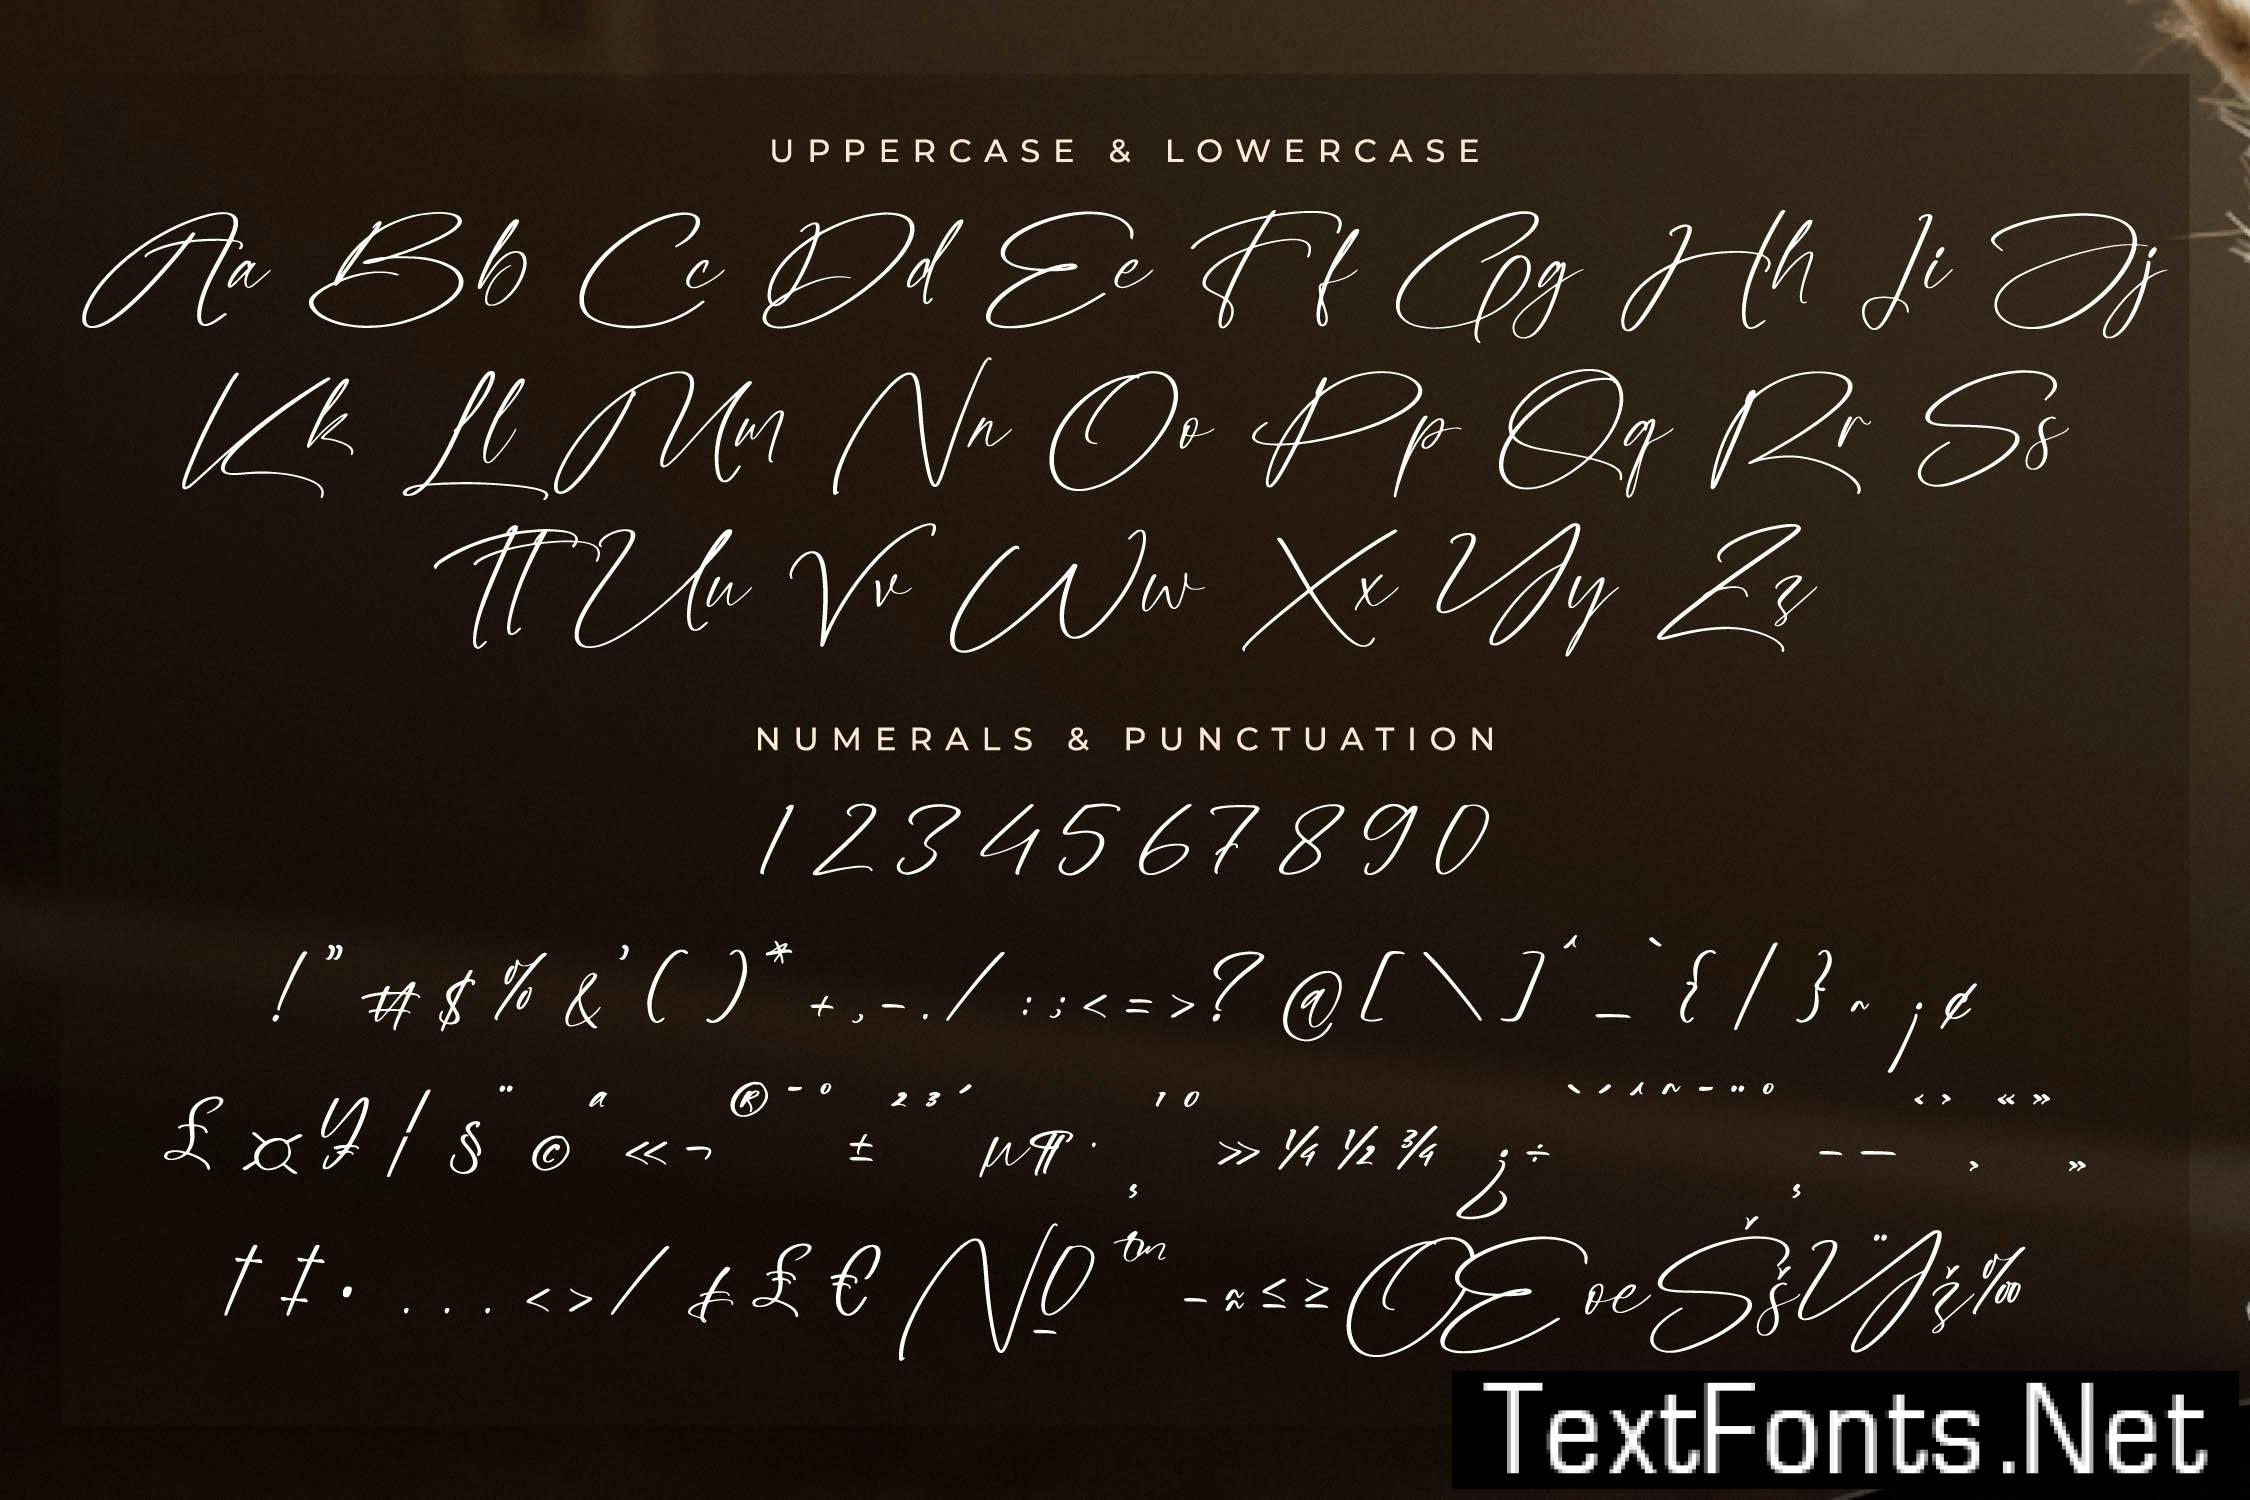 UPPERCASE & LOWERCASE
Aa Bb Cc Dd Ee Ff Gg Hh Ii Jj
Kk Ll Mm Nn Oo Pp Qq Rr Ss
Tt Uu Vv Ww Xx Yy Zz
NUMERALS & PUNCTUATION
1 2 3 4 5 6 7 8 9 0
! " # $ % & ' ( ) * + , - . / : ; < = > ? @ [ \ ] ^ _ ` { | } ~ ¡ ¢
£ ¤ ¥ ¦ § ¨ © ª « ¬ ® ¯ ° ± ² ³ ´ µ ¶ · ¸ ¹ º » ¼ ½ ¾ ¿ ÷ ` ´ ^ ~ ¯ ¨ ° ¸ – — ‹ › › « » »
† ‡ • . . . ‹ › / ₤ € № ™ − ≈ ≤ ≥ Œ œ Š š Ÿ ž ‰
TextFonts.Net